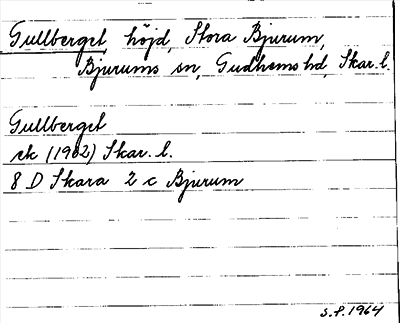 Gullberget, höjd, Stora Bjurum,
Bjurums sn, Gudhems hd, Skar. l.
Gullberget
ek (1962) Skar. l.
8 D Skara 2 c Bjurum
S.P. 1964